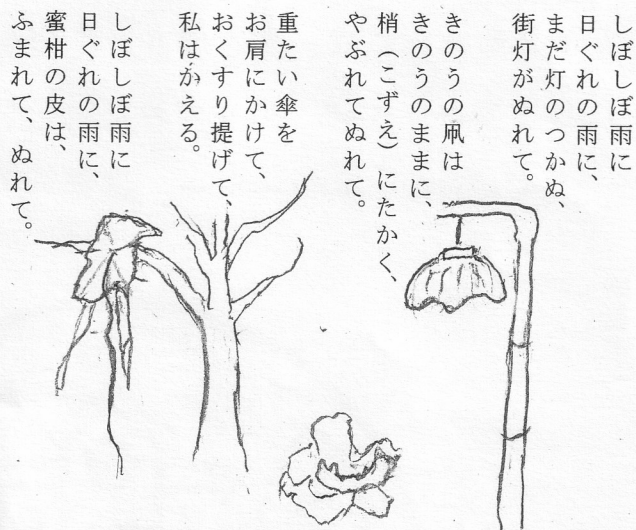 しぼしぼ雨に
日ぐれの雨に、
まだ灯のつかぬ、
街灯がぬれて。
きのうの凧は
きのうのままに、
梢（こずえ）にたかく、
やぶれてぬれて。
重たい傘を
お肩にかけて、
おくすり提げて、
私はかえる。
しぼしぼ雨に
日ぐれの雨に、
蜜柑の皮は、
ふまれて、ぬれて。